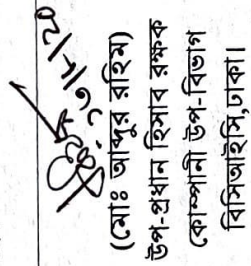 (মোঃ আব্দুর রহিম)
উপ-প্রধান হিসাব রক্ষক
কোম্পানী উপ-বিভাগ
বিসিআইসি, ঢাকা।